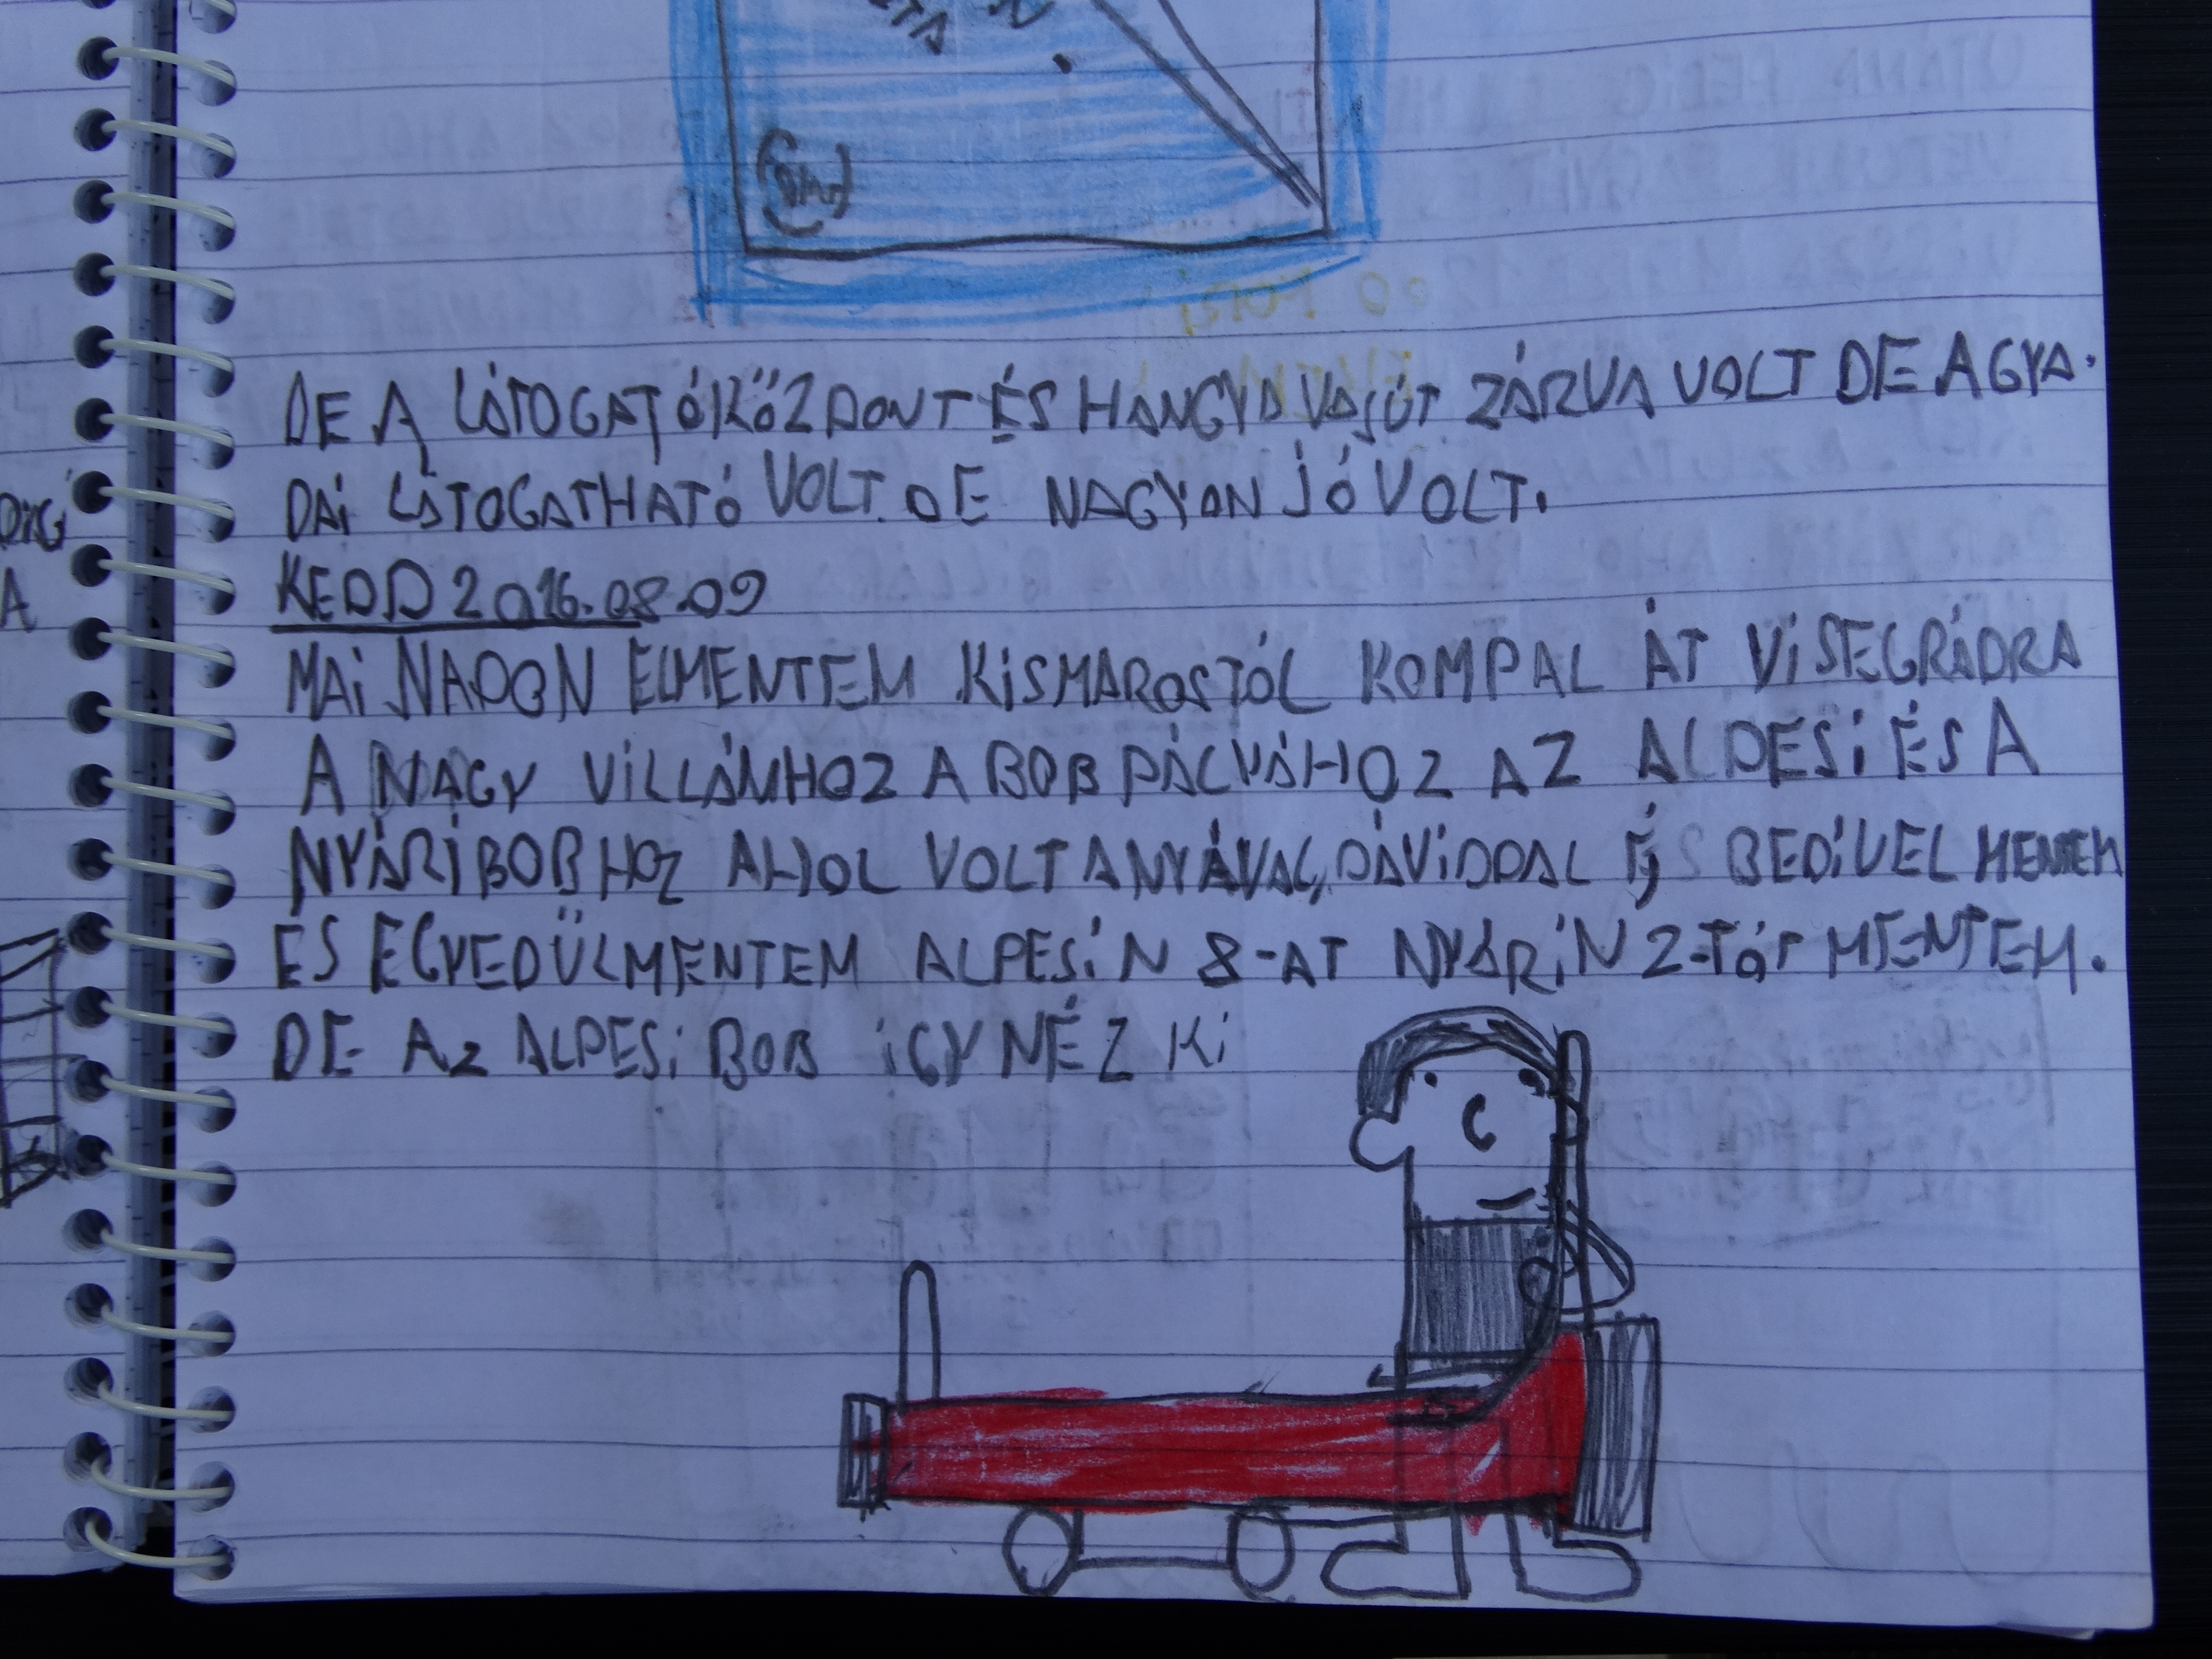 DE A LÁTOGATÓKÖZPONT ÉS HANGYA VASÚT ZÁRVA VOLT DE A GYA-
DAI LÁTOGATHATÓ VOLT. DE NAGYON JÓ VOLT.
KEDD 2016.08.09
MAI NAPON ELMENTEM KISMAROSTÓL KOMPAL ÁT VISEGRÁDRA
A NAGY VILLÁMHOZ A BOB PÁLYÁHOZ AZ ALPESI ÉS A
NYÁRI BOBHOZ AHOL VOLT ANYÁVAL, DÁVIDDAL ÉS BEDIVEL MENTEM
ÉS EGYEDÜLMENTEM ALPESIN 8-AT NYÁRIN 2-TŐT MENTEM.
DE AZ ALPESI BOB IGY NÉZ KI